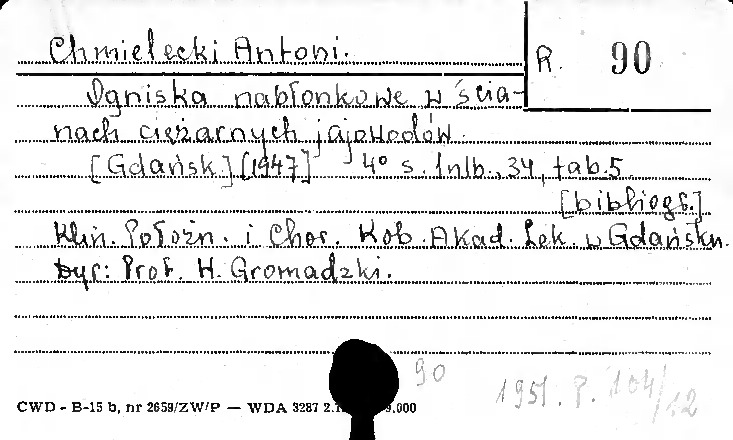 Chmielecki Antoni.
R. 90
Ogniska nabłonkowe w ścia-
nach ciężarnych jajowodów.
[Gdańsk] [1947] 4° s. 1nlb., 34, tab. 5
[bibliogr.]
Klin. Położn. i Chor. Kob. Akad. Lek. w Gdańsku.
Dyr: Prof. H. Gromadzki.
90
1951. P. 104/12
CWD - B-15 b, nr 2659/ZW/P — WDA 3287 2.000